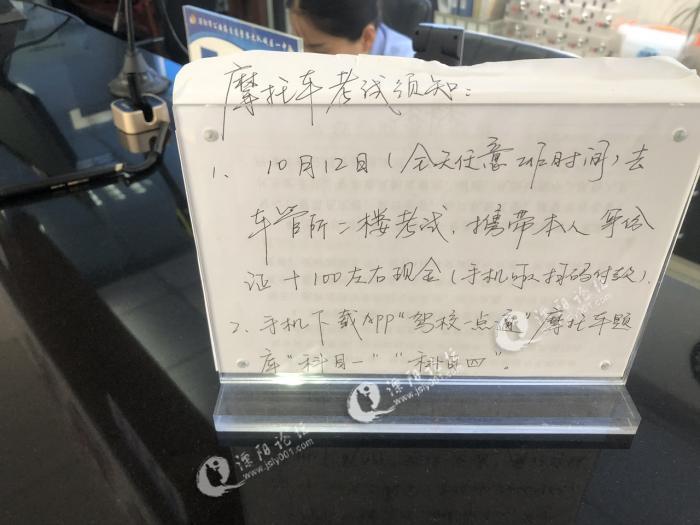 摩托车考试须知：
1、10月12日（全天任意班时间）去
车管所二楼考试，携带本人身份
证+100左右现金（手机可扫码付款）.
2、手机下载APP“驾校一点通”摩托车题
库“科目一”“科目四”。
溧阳论坛
www.jsly001.com
溧阳论坛
www.jsly001.com
溧阳论坛
www.jsly001.com